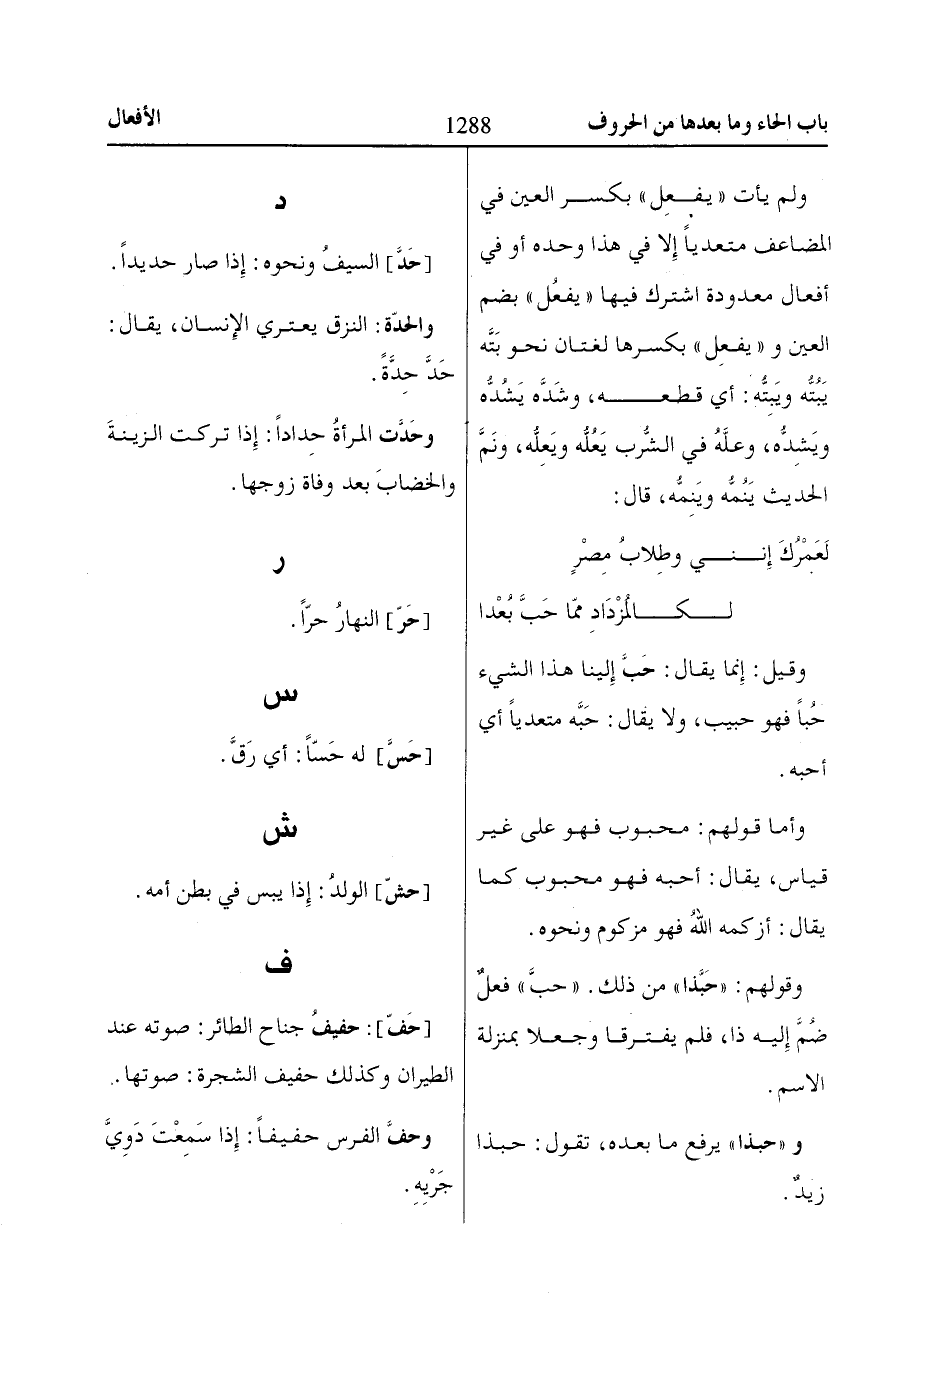 باب الحاء وما بعدها من الحروف
1288
الأفعال
ولم يأت «يفعِل» بكسر العين في
المضاعف متعدياً إلا في هذا وحده أو في
أفعال معدودة اشترك فيها «يفعُل» بضم
العين و «يفعِل» بكسرها لغتان نحو بَتَّه
يَبُتُّه ويَبِتُّه: أي قطعه، وشَدَّه يَشُدُّه
ويَشِدُّه، وعلَّهُ في الشُّرب يَعُلُّه ويَعِلُّه، ونَمَّ
الحديث يَنُمُّه ويَنِمُّه، قال:
لَعَمْرُكَ إِنني وطِلابُ مِصْرٍ
لكالمُزْدَادِ ممّا حَبَّ بُعْدا
وقيل: إنما يقال: حَبَّ إلينا هذا الشيء
حُباً فهو حبيب، ولا يقال: حَبَّه متعدياً أي
أحبه.
وأما قولهم: محبوب فهو على غير
قياس، يقال: أحبه فهو محبوب كما
يقال: أزكمه اللهُ فهو مزكوم ونحوه.
وقولهم: «حَبَّذا» من ذلك. «حبَّ» فعلٌ
ضُمَّ إليه ذا، فلم يفترقا وجعلا بمنزلة
الاسم.
و «حبذا» يرفع ما بعده، تقول: حبذا
زيدٌ.
د
[حَدَّ] السيفُ ونحوه: إذا صار حديداً.
والحدّة: النزق يعتري الإنسان، يقال:
حَدَّ حِدَّةً.
وحَدَّت المرأةُ حِداداً: إذا تركت الزينةَ
والخضابَ بعد وفاة زوجها.
ر
[حَرّ] النهارُ حرّاً.
س
[حَسَّ] له حَسّاً: أي رَقَّ.
ش
[حشّ] الولدُ: إذا يبس في بطن أمه.
ف
[حَفّ]: حفيفُ جناح الطائر: صوته عند
الطيران وكذلك حفيف الشجرة: صوتها.
وحفَّ الفرس حفيفاً: إذا سَمِعْتَ دَوِيَّ
جَرْيِهِ.